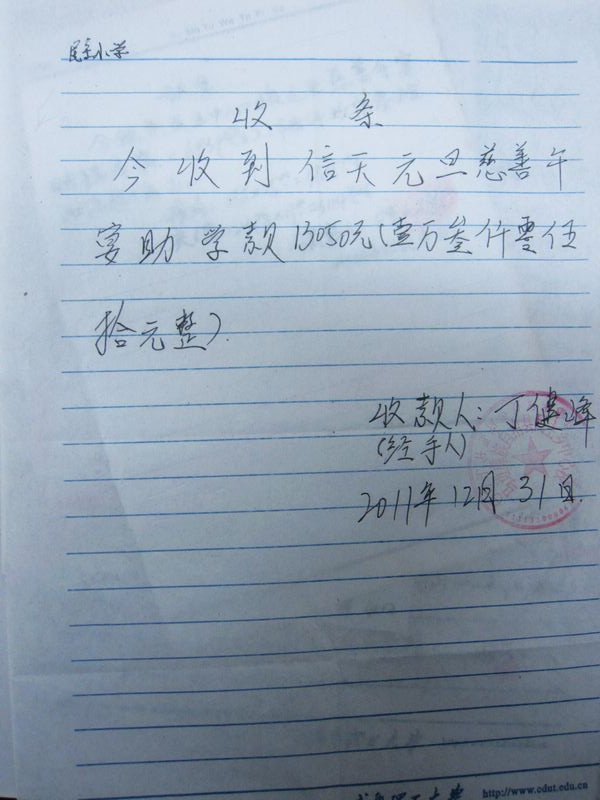 民主小学
收 条
今收到信天元旦慈善午
宴助学款13050元(壹万叁仟零伍
拾元整).
收款人:丁健峰
(经手人)
2011年12月31日.
成都理工大学 http://www.cdut.edu.cn